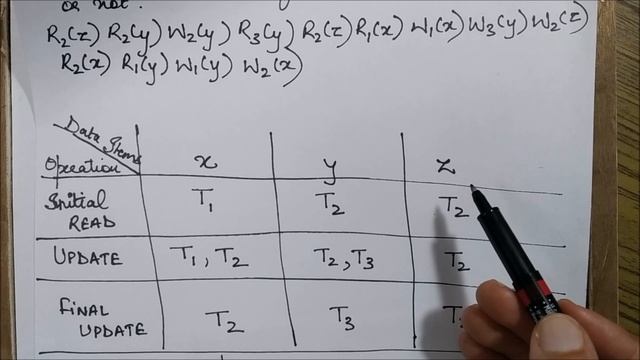 or not.
R₂(z) R₂(y) W₂(y) R₃(y) R₂(z) R₁(x) W₁(x) W₃(y) W₂(z)
R₂(x) R₁(y) W₁(y) W₂(x)
Data Items
Operation x y z
Initial READ T₁ T₂ T₂
UPDATE T₁, T₂ T₂, T₃ T₂
FINAL UPDATE T₂ T₃